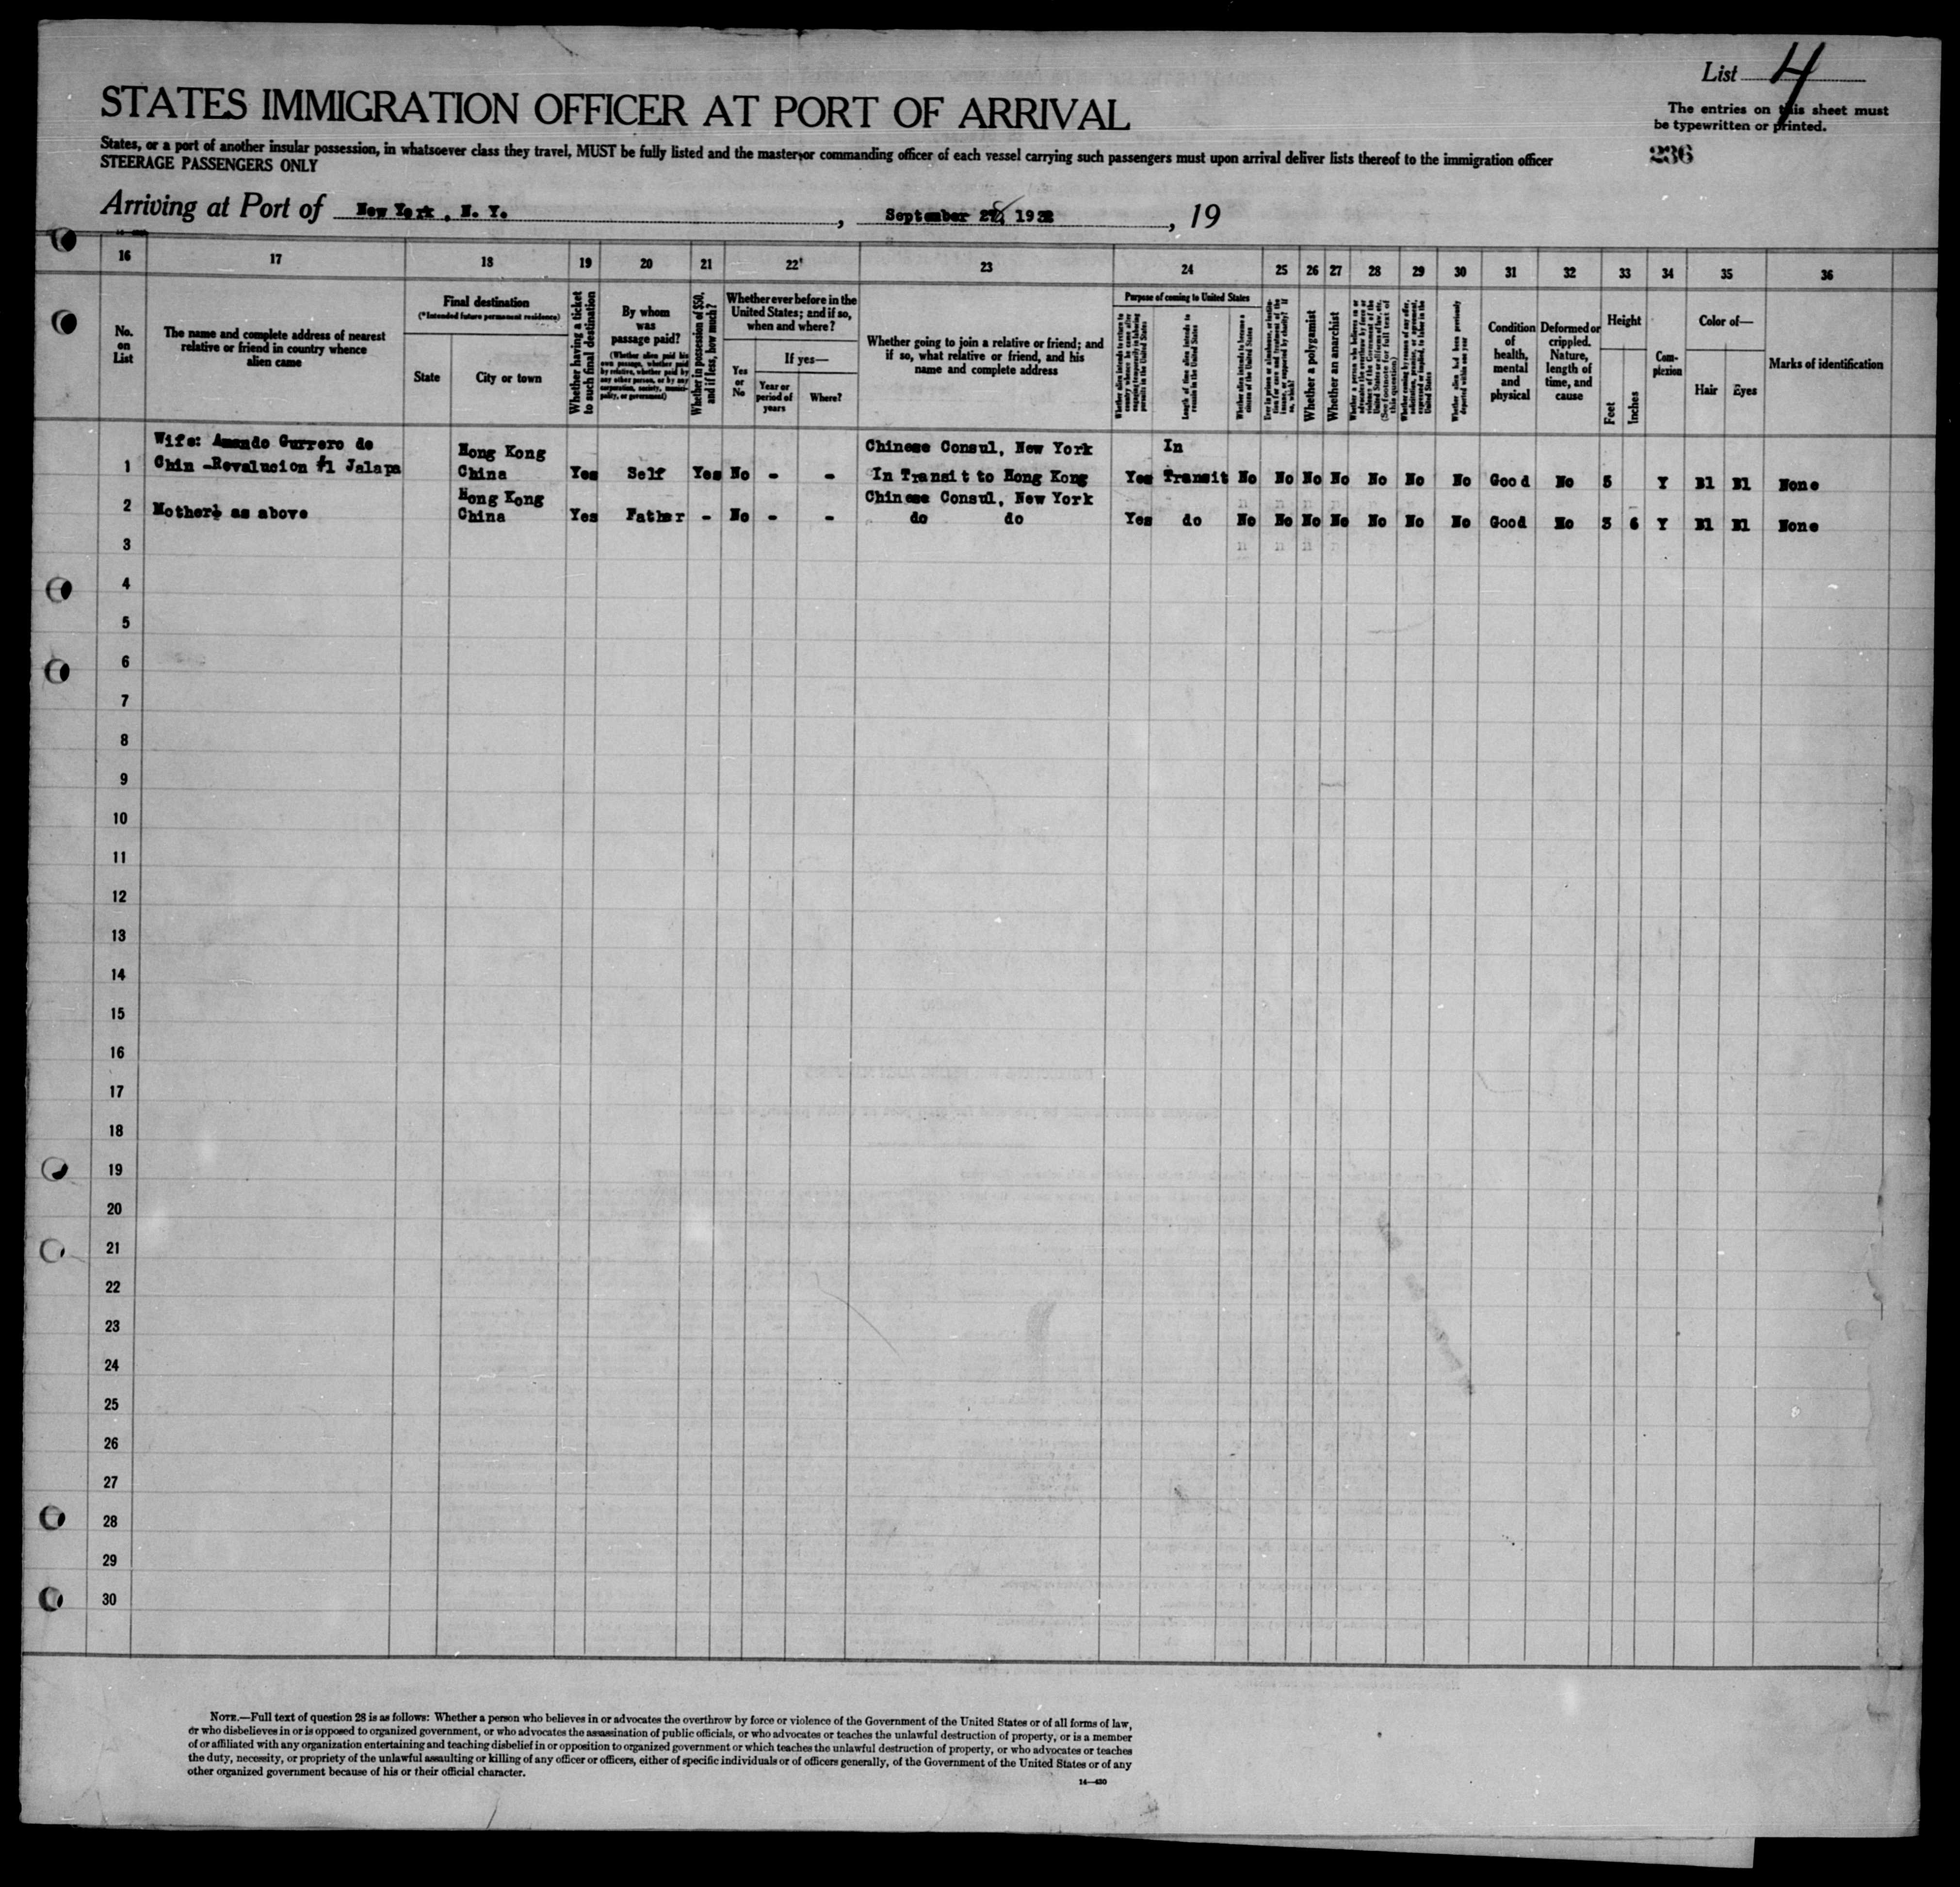 List 4
STATES IMMIGRATION OFFICER AT PORT OF ARRIVAL
The entries on this sheet must
be typewritten or printed.
States, or a port of another insular possession, in whatsoever class they travel, MUST be fully listed and the master or commanding officer of each vessel carrying such passengers must upon arrival deliver lists thereof to the immigration officer
STEERAGE PASSENGERS ONLY
236
Arriving at Port of New York, N. Y., September 28, 1932, 19
16 17 18 19 20 21 22 23 24 25 26 27 28 29 30 31 32 33 34 35 36
No.
on
List
The name and complete address of nearest
relative or friend in country whence
alien came
Final destination
(*Intended future permanent residence)
State
City or town
Whether having a ticket
to such final destination
By whom
was
passage paid?
(Whether alien paid his
own passage, whether paid
by relative, whether paid by
any other person, or by any
corporation, society, munici-
pality, or government)
Whether in possession of $50,
and if less, how much?
Whether ever before in the
United States; and if so,
when and where?
Yes
or
No
If yes—
Year or
period of
years
Where?
Whether going to join a relative or friend; and
if so, what relative or friend, and his
name and complete address
Purpose of coming to United States
Whether alien intends to return to
country whence he came after
engaging temporarily in laboring
pursuits in the United States
Length of time alien intends to
remain in the United States
Whether alien intends to become a
citizen of the United States
Whether a polygamist
Whether an anarchist
Whether alien had been previously
deported within one year
Condition
of
health,
mental
and
physical
Deformed or
crippled.
Nature,
length of
time, and
cause
Height
Feet
Inches
Com-
plexion
Color of—
Hair
Eyes
Marks of identification
Wife: Amando Gurrero de Hong Kong Chinese Consul, New York In
1 Chin -Revalucion #1 Jalapa China Yes Self Yes No - - In Transit to Hong Kong Yes Transit No No No No No No No Good No 5 Y Bl Bl None
Hong Kong Chinese Consul, New York
2 Mother: as above China Yes Father - No - - do do Yes do No No No No No No No Good No 3 6 Y Bl Bl None
3
4
5
6
7
8
9
10
11
12
13
14
15
16
17
18
19
20
21
22
23
24
25
26
27
28
29
30
NOTE.—Full text of question 28 is as follows: Whether a person who believes in or advocates the overthrow by force or violence of the Government of the United States or of all forms of law,
or who disbelieves in or is opposed to organized government, or who advocates the assassination of public officials, or who advocates or teaches the unlawful destruction of property, or is a member
of or affiliated with any organization entertaining and teaching disbelief in or opposition to organized government or which teaches the unlawful destruction of property, or who advocates or teaches
the duty, necessity, or propriety of the unlawful assaulting or killing of any officer or officers, either of specific individuals or of officers generally, of the Government of the United States or of any
other organized government because of his or their official character.
14—430